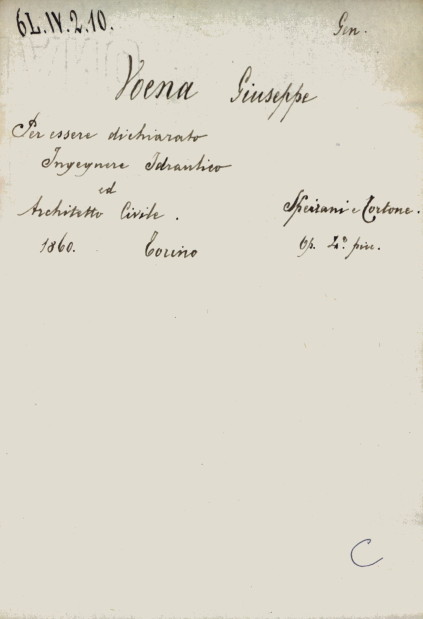 6L.IV.2.10. Gen.
Voena Giuseppe
Per essere dichiarato
Ingegnere Idraulico
ed
Architetto Civile. Speirani e Tortone.
1860. Torino Op. 4º. picc.
C